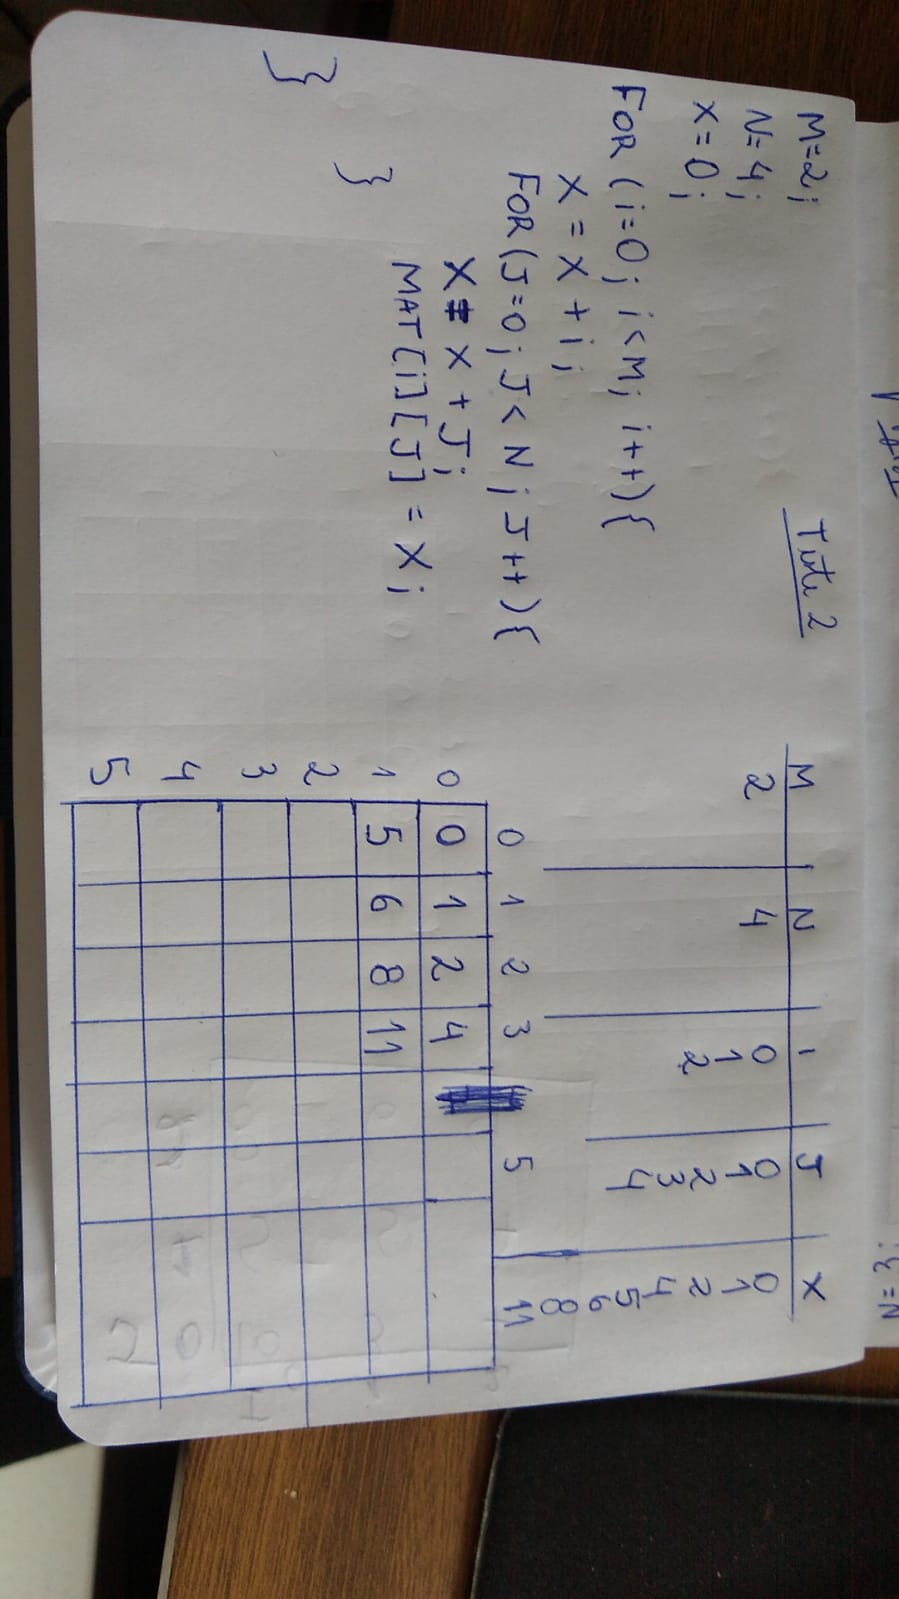 Teste 2
M=2;
N=4;
X=0;
FOR (i=0; i<M; i++){
X = X + i;
FOR (J=0; J<N; J++){
X = X + J;
MAT[i][J] = X;
}
}
M N i J X
2 4 0 0 0
1 1 1
2 2 2
3 4
4 5
6
8
11
0 1 2 3 5
0 0 1 2 4
1 5 6 8 11
2
3
4
5
N=3;